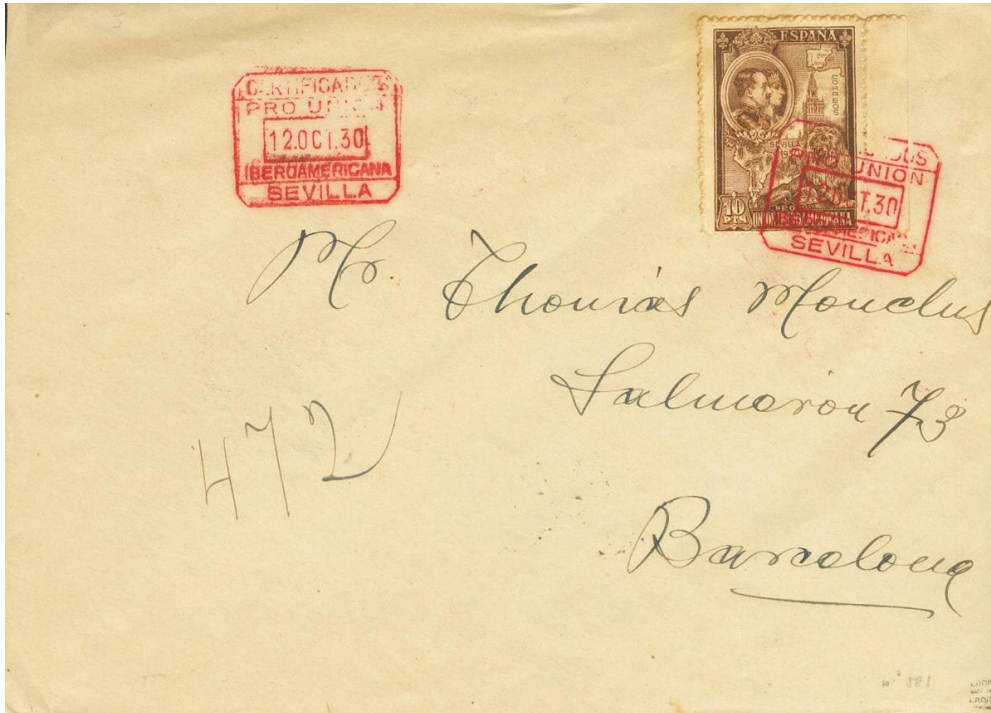 CERTIFICADOS
PRO UNION
12.OCT.30
IBEROAMERICANA
SEVILLA
ESPAÑA
CORREOS
10
PTS
PRO
UNION
T.30
SEVILLA
Mr. Thomás Monclus
Salmerón 73
Barcelona
472
nº 881